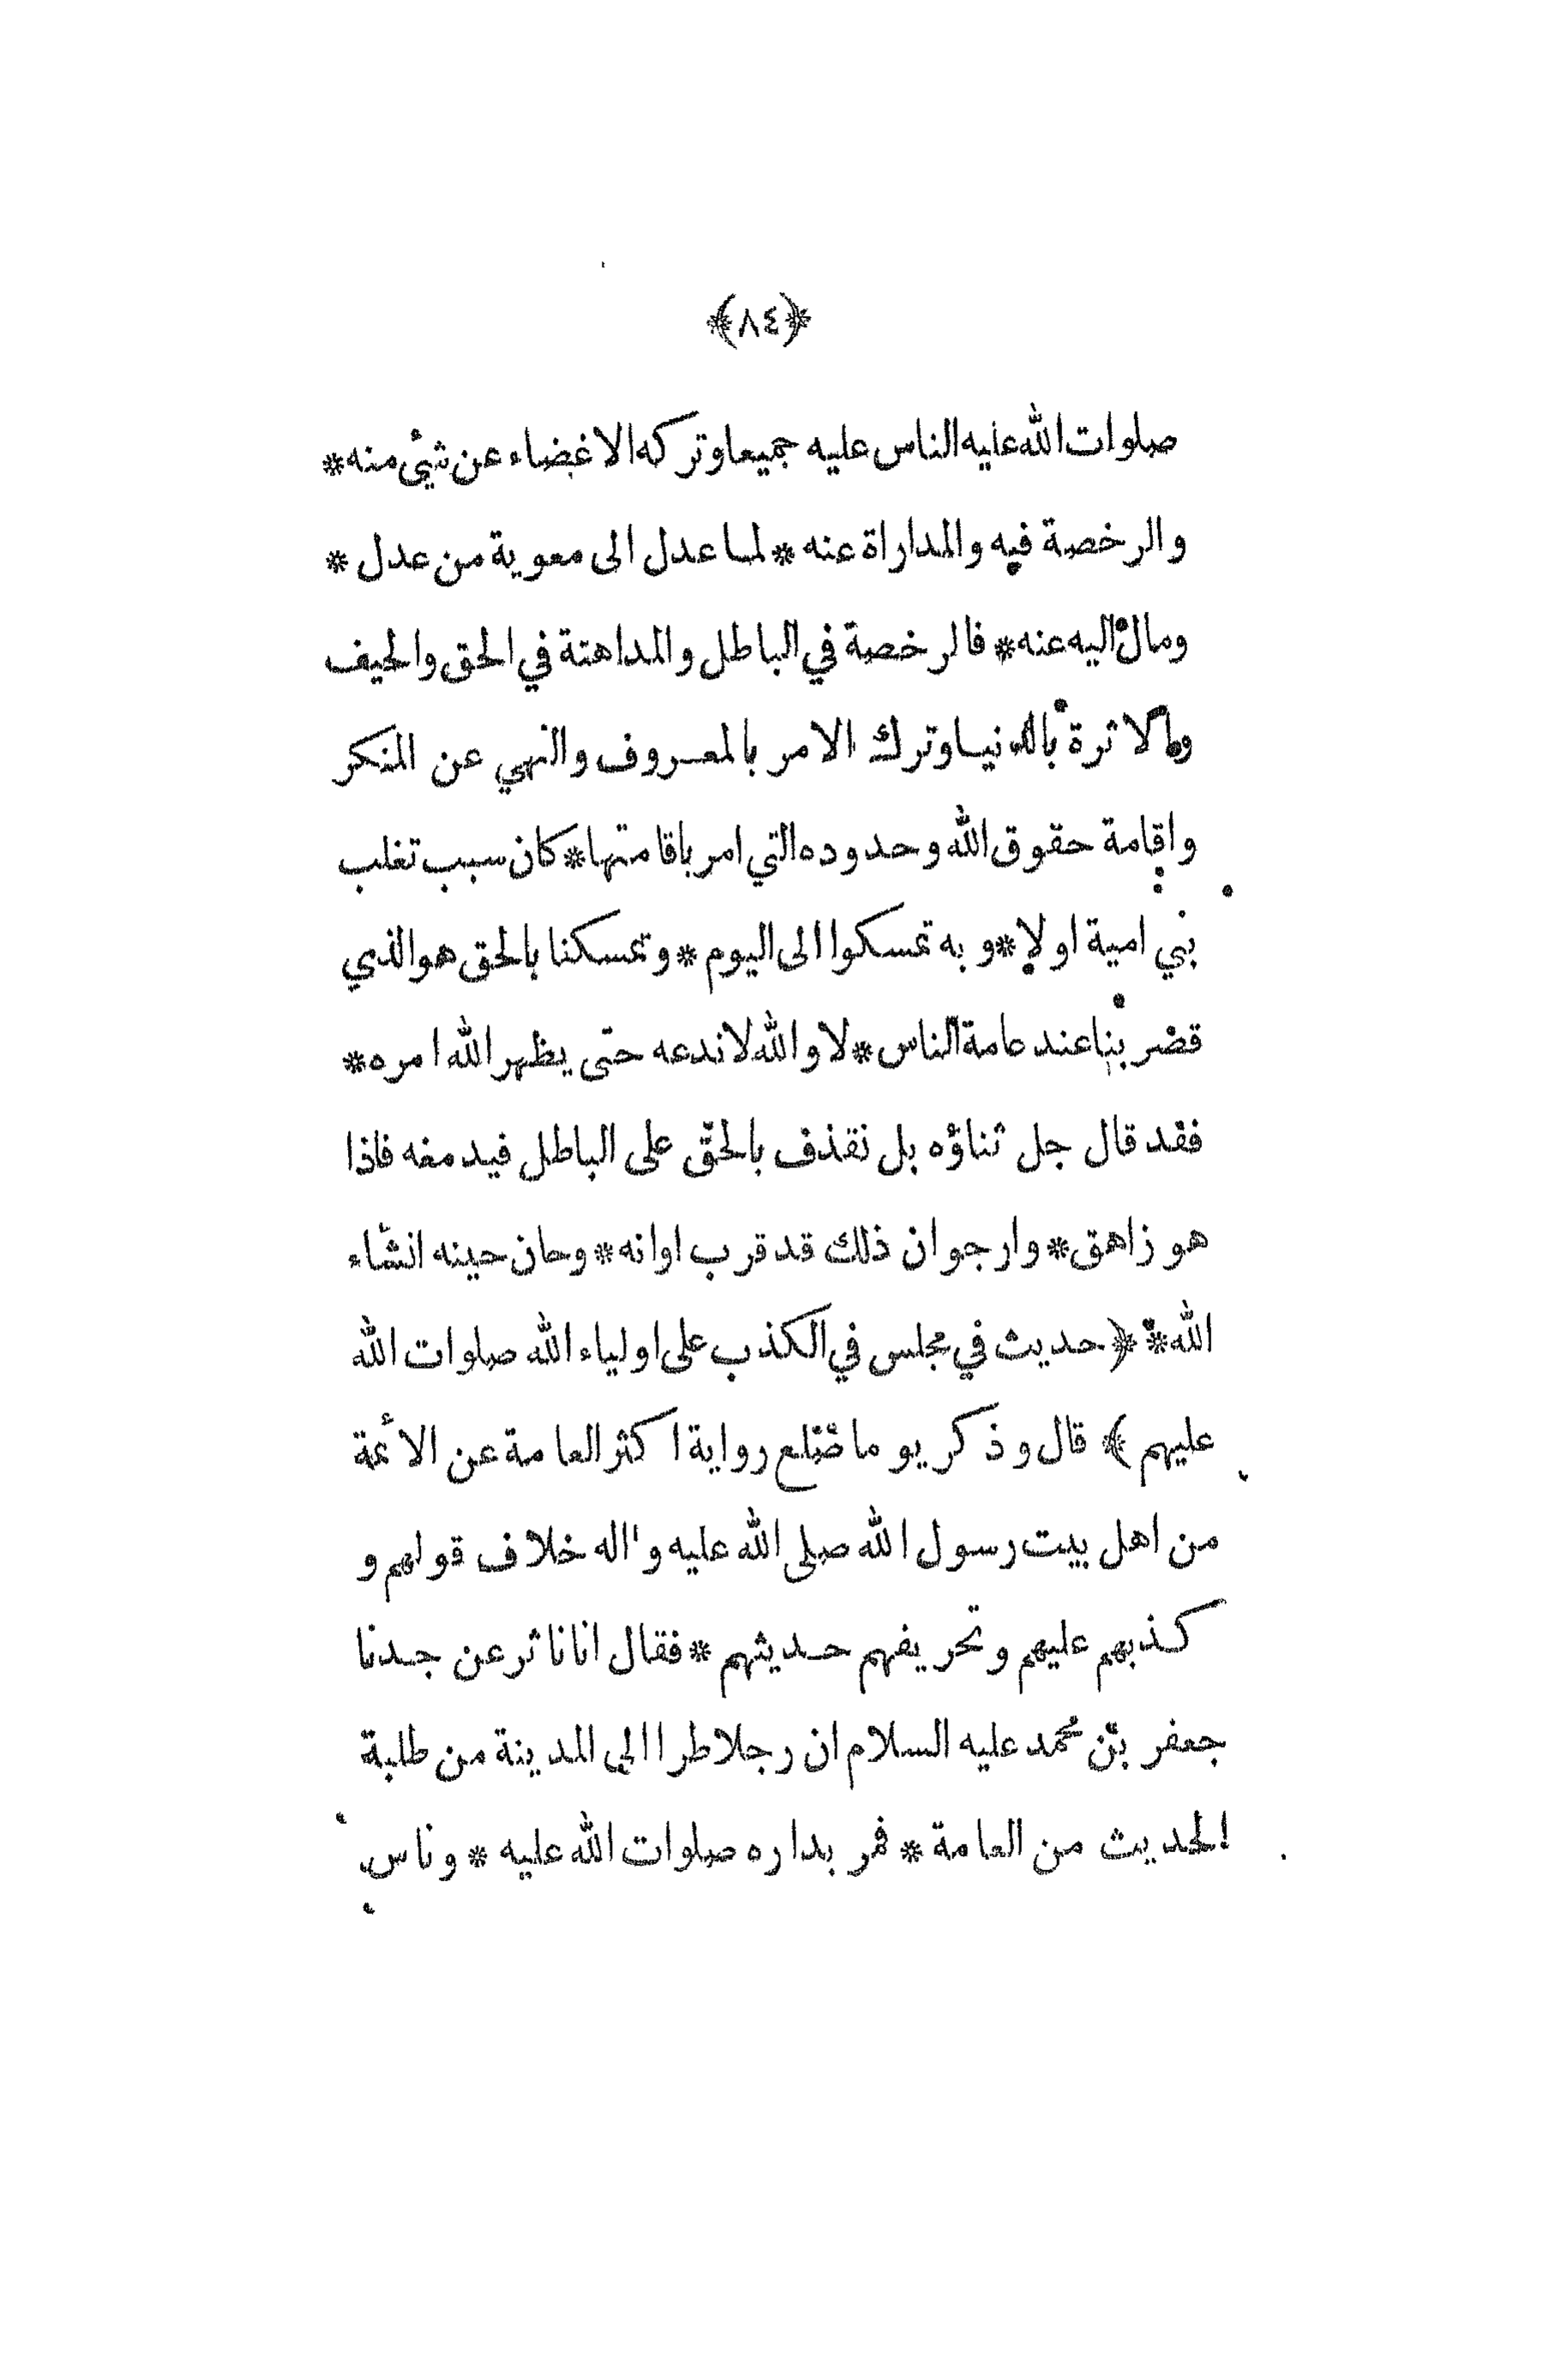 ﴿٨٤﴾
صلوات الله عليه الناس عليه جميعا وتركه الاغضاء عن شئ منه *
والرخصة فيه والمداراة عنه * لما عدل الى معوية من عدل *
ومال اليه عنه * فالرخصة في الباطل والمداهنة في الحق والحيف
والاثرة بالدنيا وترك الامر بالمعروف والنهي عن المنكر
واقامة حقوق الله وحدوده التي امر باقامتها * كان سبب تغلب
بني امية اولا * وبه تمسكوا الى اليوم * وتمسكنا بالحق هو الذي
قصر بنا عند عامة الناس * لا والله لاندعه حتى يظهر الله امره *
فقد قال جل ثناؤه بل نقذف بالحقّ على الباطل فيدمغه فاذا
هو زاهق * وارجو ان ذلك قد قرب اوانه * وحان حينه انشاء
الله * ﴿ حديث في مجلس في الكذب على اولياء الله صلوات الله
عليهم ﴾ قال وذكر يوما رواية اكثر العامة عن الأئمة
من اهل بيت رسول الله صلى الله عليه واله خلاف قولهم و
كذبهم عليهم وتحريفهم حديثهم * فقال انا ناثر عن جدنا
جعفر بن محمد عليه السلام ان رجلا طرا الى المدينة من طلبة
الحديث من العامة * فمر بداره صلوات الله عليه * وناس